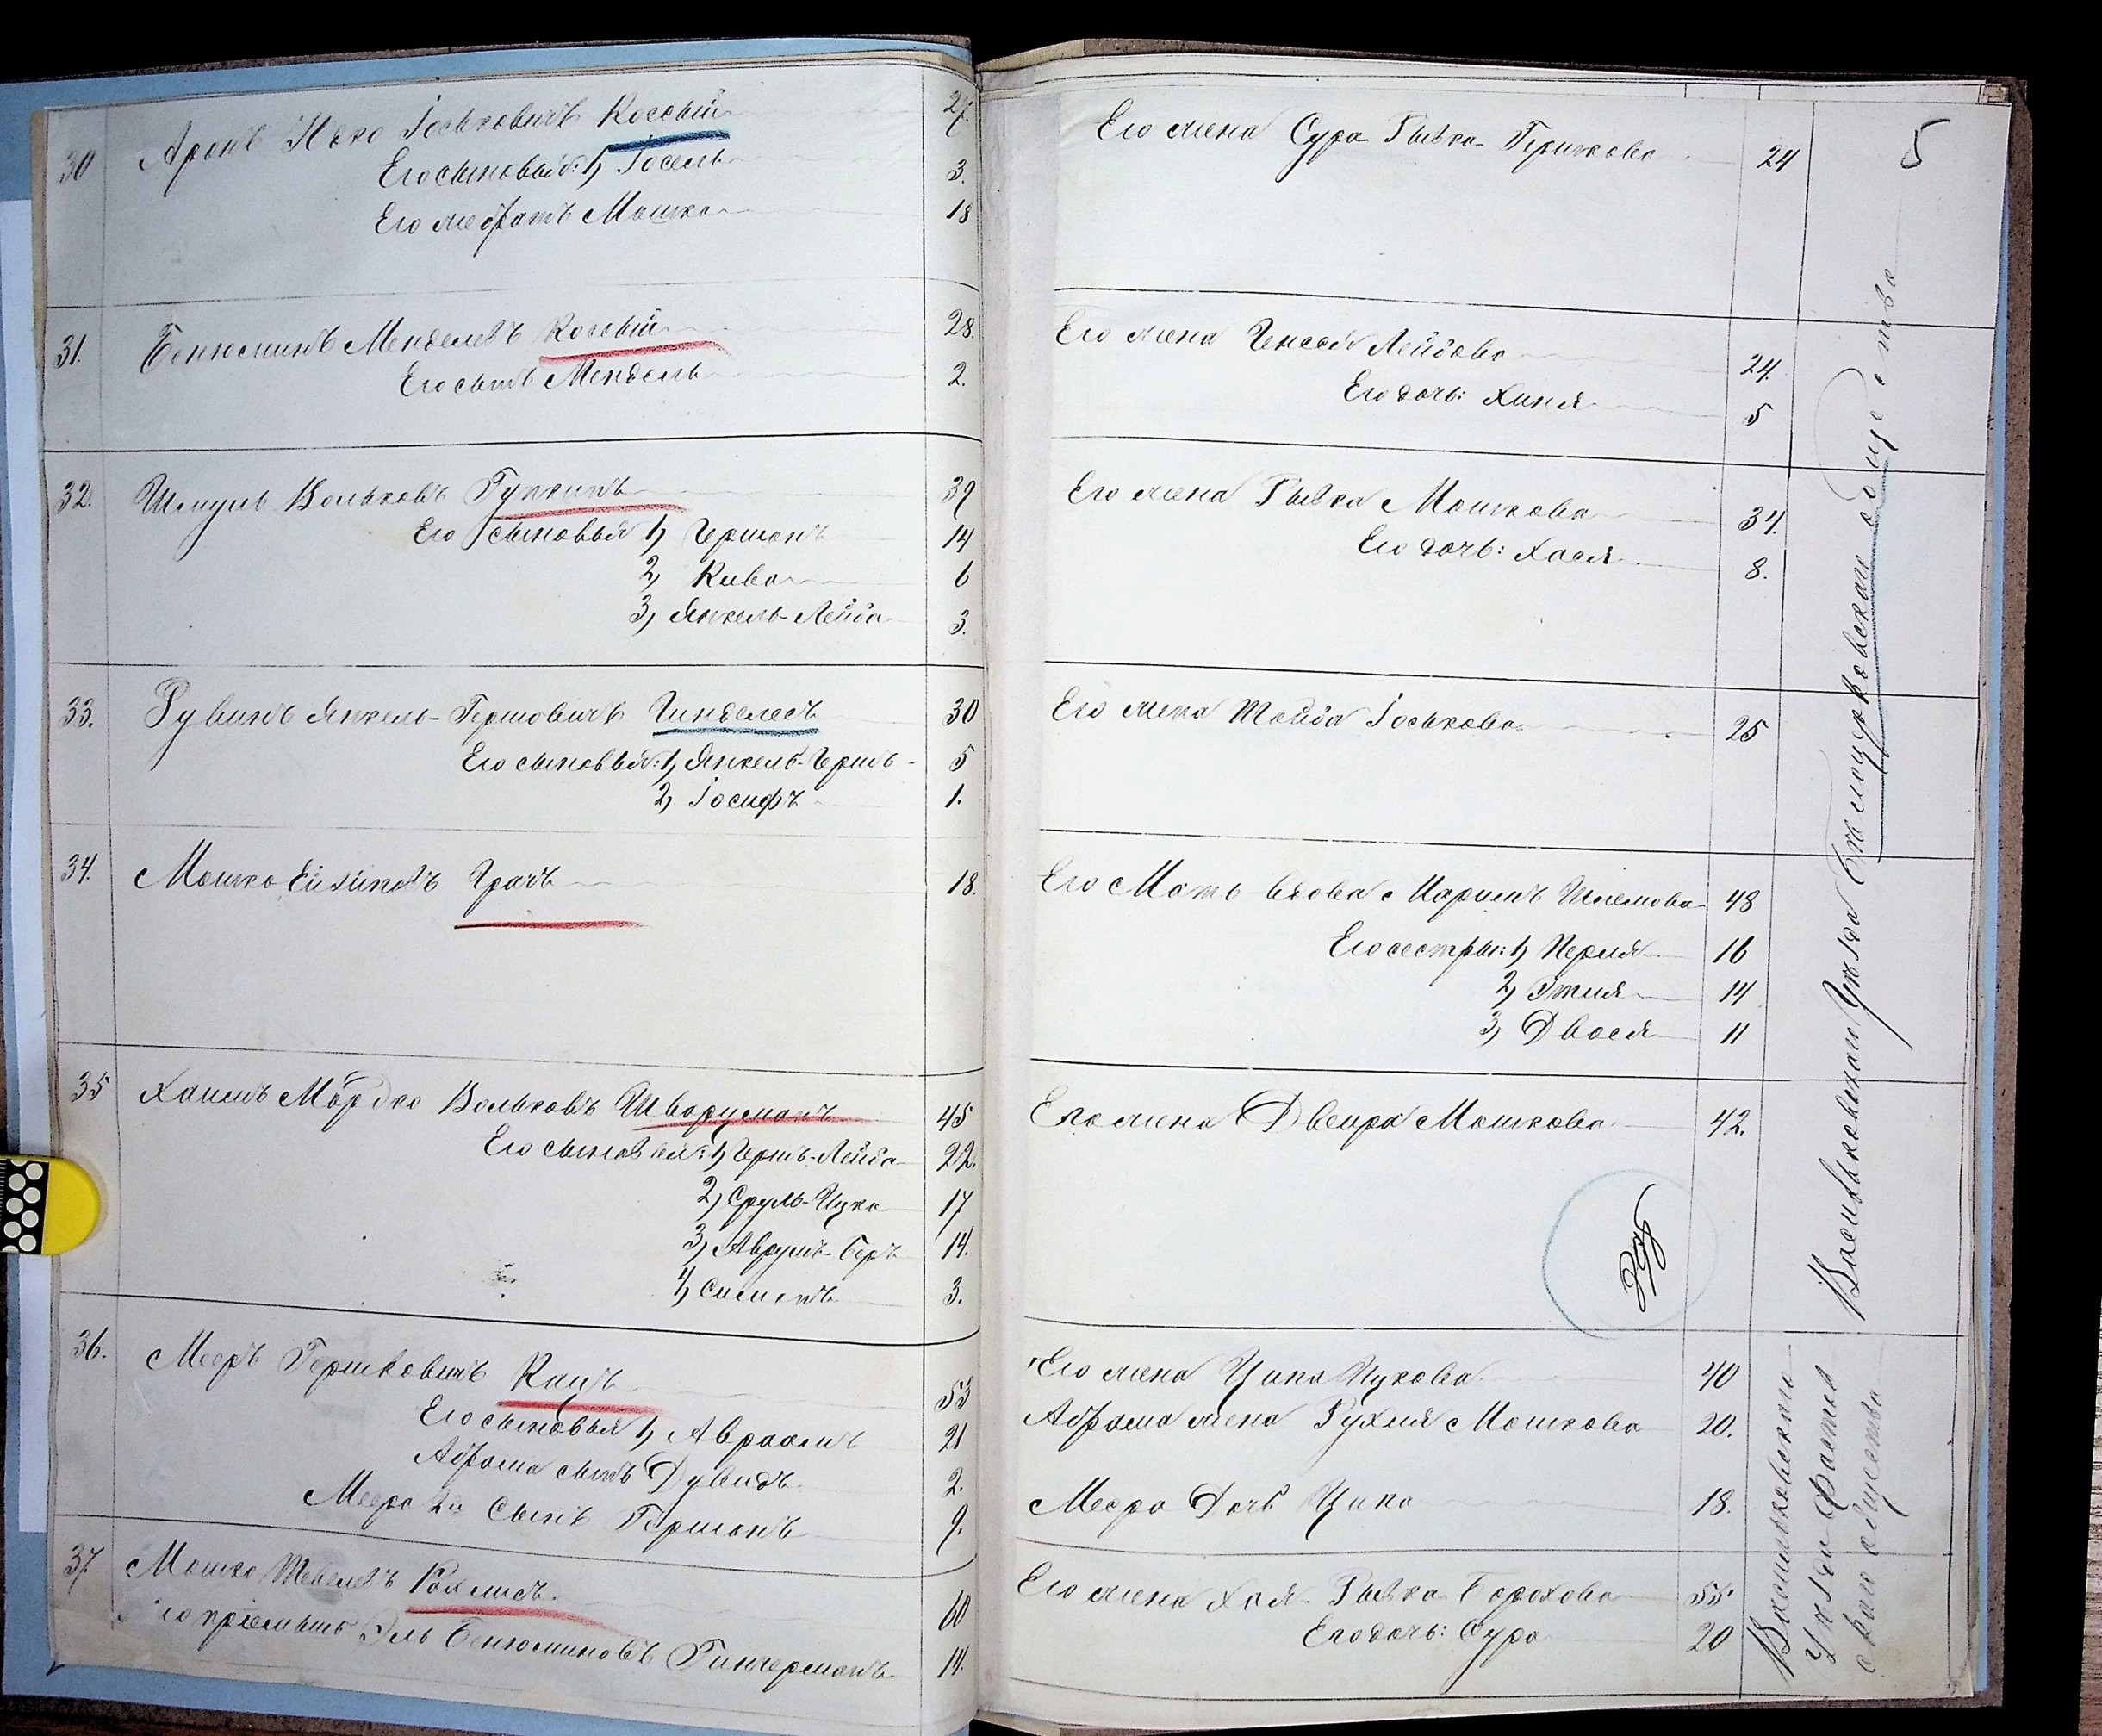 5
30 Аронъ Иоко Іоськовичъ Коссый 27.
Его сыновья: 1, Іосель 3.
Его же братъ Мошко 18
Его жена Сура Рывка Гершкова 24
31. Бенюминъ Менделевъ Коссый 28.
Его сынъ Мендель 2.
Его жена Генсея Лейбова 24.
Его дочь: Хиня 5
32. Шмуль Вольковъ Гупкинъ 39
Его сыновья 1, Гершонъ 14
2, Кива 6
3, Янкель-Лейба 3.
Его жена Рывка Мошкова 34.
Его дочь: Хася 8.
33. Рувинъ Янкель-Гершовичъ Гинделесъ 30
Его сыновья: 1, Янкель-Гершъ 5
2, Іосифъ 1.
Его жена Тойба Іоськова 25
34. Мошко Ейзиковъ Грачъ 18.
Его Мать вдова Маріимъ Шлемова 48
Его сестры: 1, Перля 16
2, Этля 14
3, Двося 11
35 Хаимъ Мордко Вольковъ Шварцманъ 45
Его сыновья: 1, Гершъ-Лейба 22.
2, Сруль-Ицко 17
3, Аврумъ-Беръ 14.
4, Симонъ 3.
Его жена Двейра Мошкова 42.
36. Мееръ Гершковичъ Кацъ 53
Его сыновья 1, Авраамъ 21
Абрама сынъ Дувидъ 2.
Меера 2й Сынъ Гершонъ 9.
Его жена Ципа Ицкова 40
Абрама жена Рухля Мошкова 20.
Меера Дочь Ципа 18.
37 Мошко Тевелевъ Рохлисъ 60
го пріемышъ Эль Бенюминовъ Гингерманъ 14.
Его жена Хая-Рывка Борохова 55
Его дочь: Сура 20
Васильковскаго Уѣзда Бѣлоцерковскаго общества
Васильковскаго
Уѣзда Фастов
скаго общества